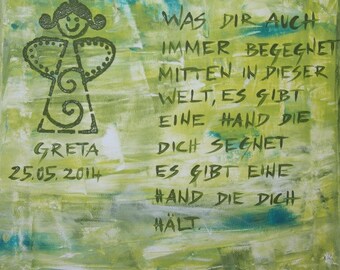 WAS DIR AUCH
IMMER BEGEGNET
MITTEN IN DIESER
WELT, ES GIBT
EINE HAND DIE
DICH SEGNET
ES GIBT EINE
HAND DIE DICH
HÄLT.
GRETA
25.05.2014